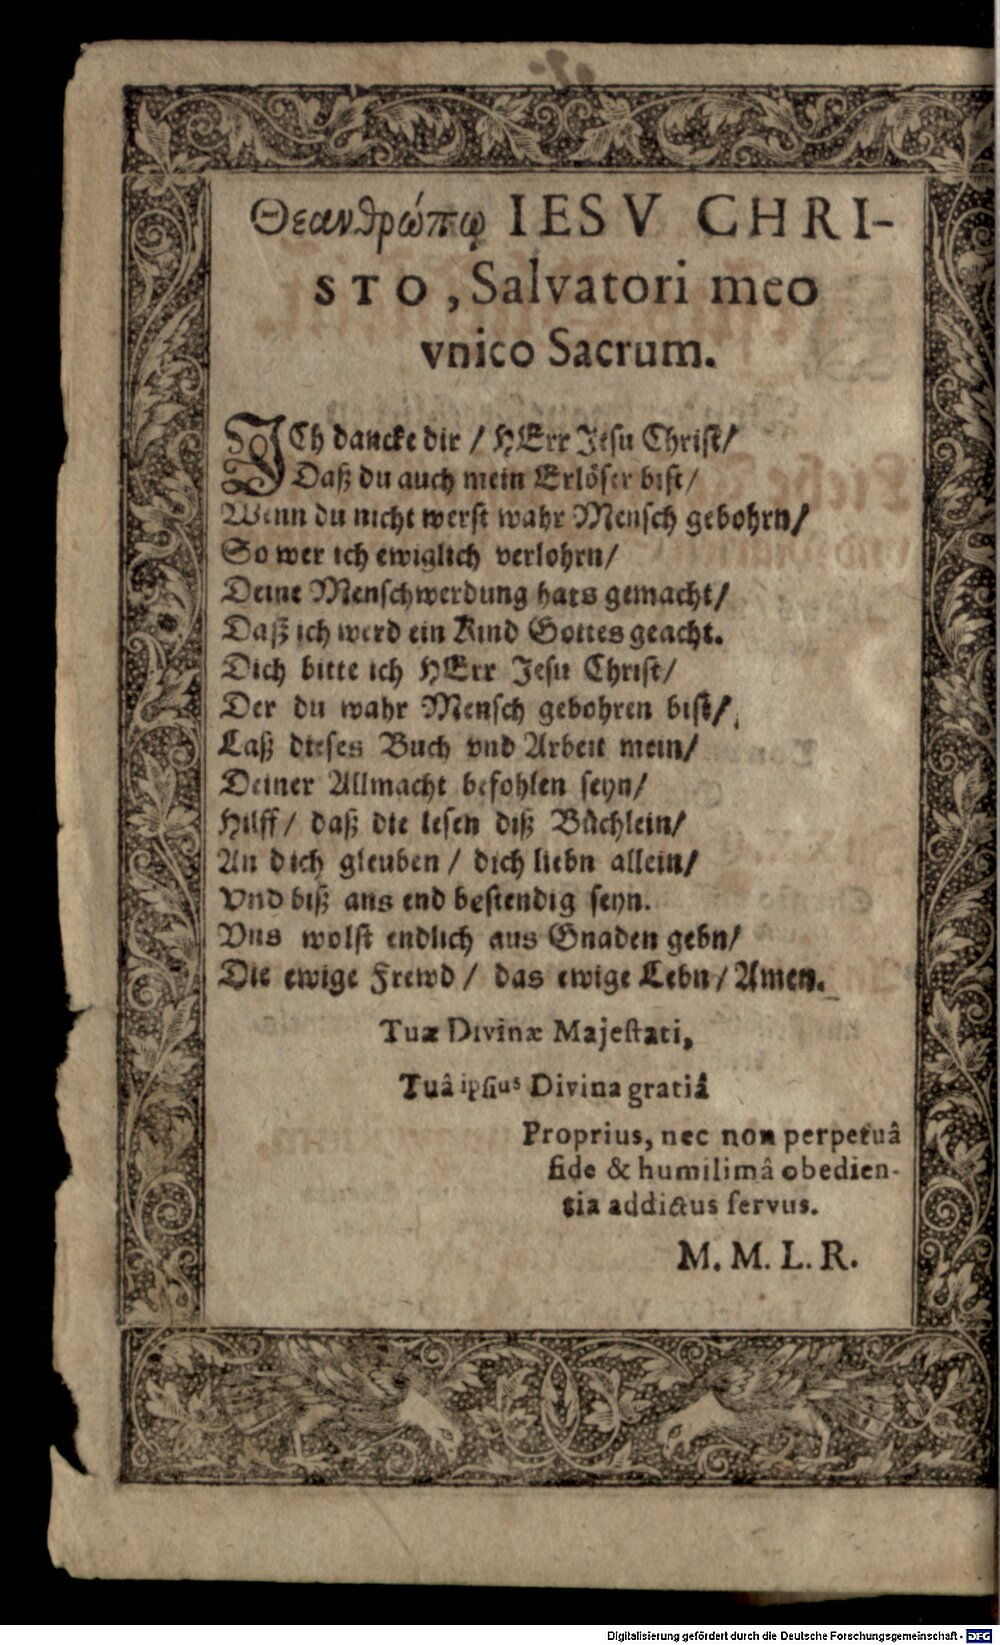 Θεανθρώπῳ IESV CHRI-
STO, Salvatori meo
vnico Sacrum.
ICh dancke dir / HErr Jesu Christ/
Daß du auch mein Erlöser bist/
Wenn du nicht werst wahr Mensch gebohrn/
So wer ich ewiglich verlohrn/
Deine Menschwerdung hats gemacht/
Daß ich werd ein Kind Gottes geacht.
Dich bitte ich HErr Jesu Christ/
Der du wahr Mensch gebohren bist/
Laß dieses Buch vnd Arbeit mein/
Deiner Allmacht befohlen seyn/
Hilff / daß die lesen diß Büchlein/
An dich gleuben / dich liebn allein/
Vnd biß ans end bestendig seyn.
Vns wolst endlich aus Gnaden gebn/
Die ewige Frewd / das ewige Lebn / Amen.
Tuæ Divinæ Majestati,
Tuâ ipsius Divina gratiâ
Proprius, nec non perpetuâ
fide & humilimâ obedien-
tia addictus servus.
M. M. L. R.
Digitalisierung gefördert durch die Deutsche Forschungsgemeinschaft - DFG